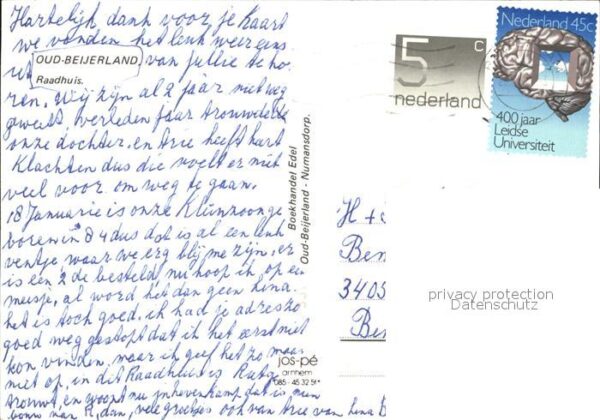 Hartelijk dank voor je kaart
we vonden het leuk weer eens
OUD-BEIJERLAND
Raadhuis.
van jullie te ho-
ren. Wij zijn al 2 jaar niet weg
geweest verleden jaar trouwde
onze dochter, en Arie heeft hart
klachten dus die voelt er niet
veel voor om weg te gaan.
18 Januarie is onze Kleinzoon ge
boren in 84 dus dat is al een leuk
ventje waar we erg blij mee zijn, er
is een 2de besteld nu hoop ik op een
meisje, al word het dan geen Lena.
het is toch goed. ik had je adres zo
goed weg gestopt dat ik het eerst niet
kon vinden. maar ik geef het zo maar
niet op, in dit Raadhuis is
trouwt, en woont nu
van R,dam, vele groetjes ook van Arie van Lena B
Boekhandel Edel
Oud-Beijerland - Numansdorp.
jos-pé
arnhem
085-45 32 51*
5 c
nederland
Nederland 45c
400 jaar
Leidse
Universiteit
H +
Ben
3405
Be
privacy protection
Datenschutz